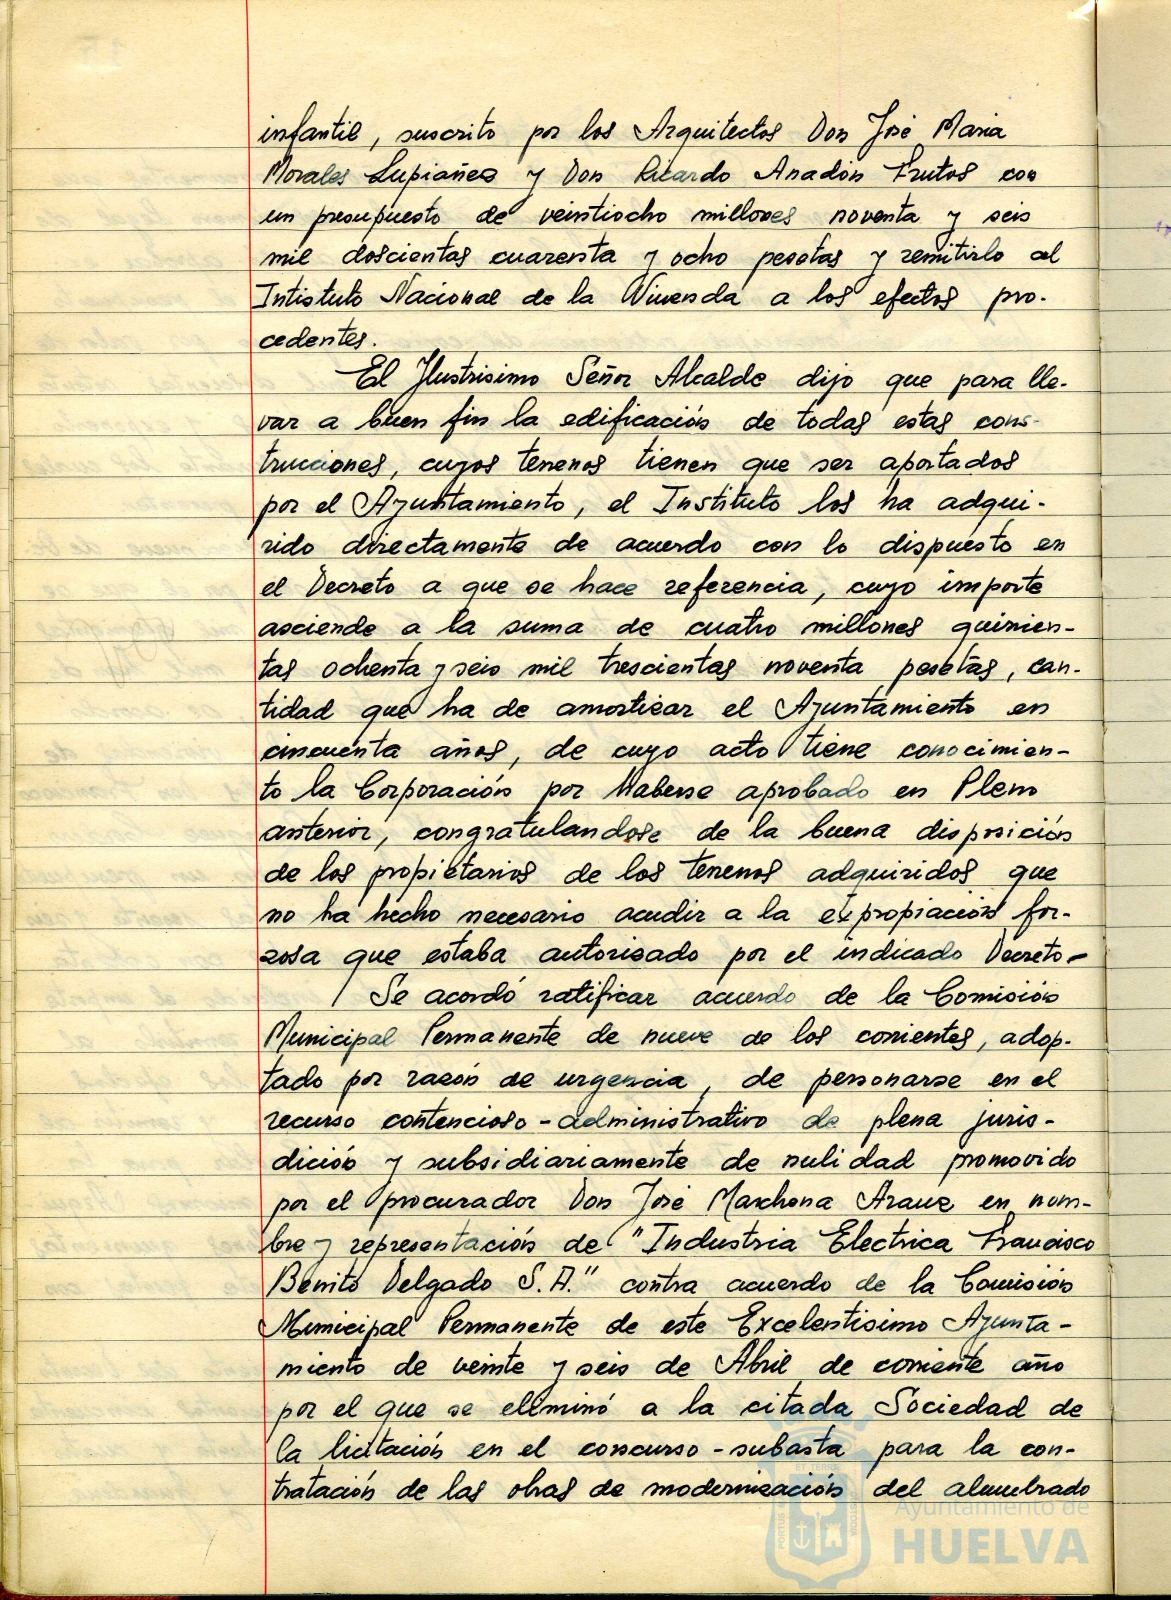 infantil, suscrito por los Arquitectos Don José Maria
Morales Lupiañez y Don Ricardo Anadón Frutos con
un presupuesto de veintiocho millones noventa y seis
mil doscientas cuarenta y ocho pesetas y remitirlo al
Intistuto Nacional de la Vivienda a los efectos pro-
cedentes.
El Ilustrisimo Señor Alcalde dijo que para lle-
var a buen fin la edificación de todas estas cons-
trucciones, cuyos terrenos tienen que ser aportados
por el Ayuntamiento, el Instituto los ha adqui-
rido directamente de acuerdo con lo dispuesto en
el Decreto a que se hace referencia, cuyo importe
asciende a la suma de cuatro millones quinien-
tas ochenta y seis mil trescientas noventa pesetas, can-
tidad que ha de amortizar el Ayuntamiento en
cincuenta años, de cuyo acto tiene conocimien-
to la Corporación por Haberse aprobado en Pleno
anterior, congratulandose de la buena disposición
de los propietarios de los terrenos adquiridos que
no ha hecho necesario acudir a la expropiación for-
zosa que estaba autorizado por el indicado Decreto-
Se acordó ratificar acuerdo de la Comisión
Municipal Permanente de nueve de los corrientes, adop-
tado por razón de urgencia, de personarse en el
recurso contencioso-administrativo de plena juris-
dición y subsidiariamente de nulidad promovido
por el procurador Don José Marchena Arauz en nom-
bre y representación de "Industria Electrica Francisco
Benito Delgado S.A." contra acuerdo de la Comisión
Municipal Permanente de este Excelentisimo Ayunta-
miento de veinte y seis de Abril de corriente año
por el que se eliminó a la citada Sociedad de
la licitación en el concurso-subasta para la con-
tratación de las obras de modernización del alumbrado
Ayuntamiento de
HUELVA